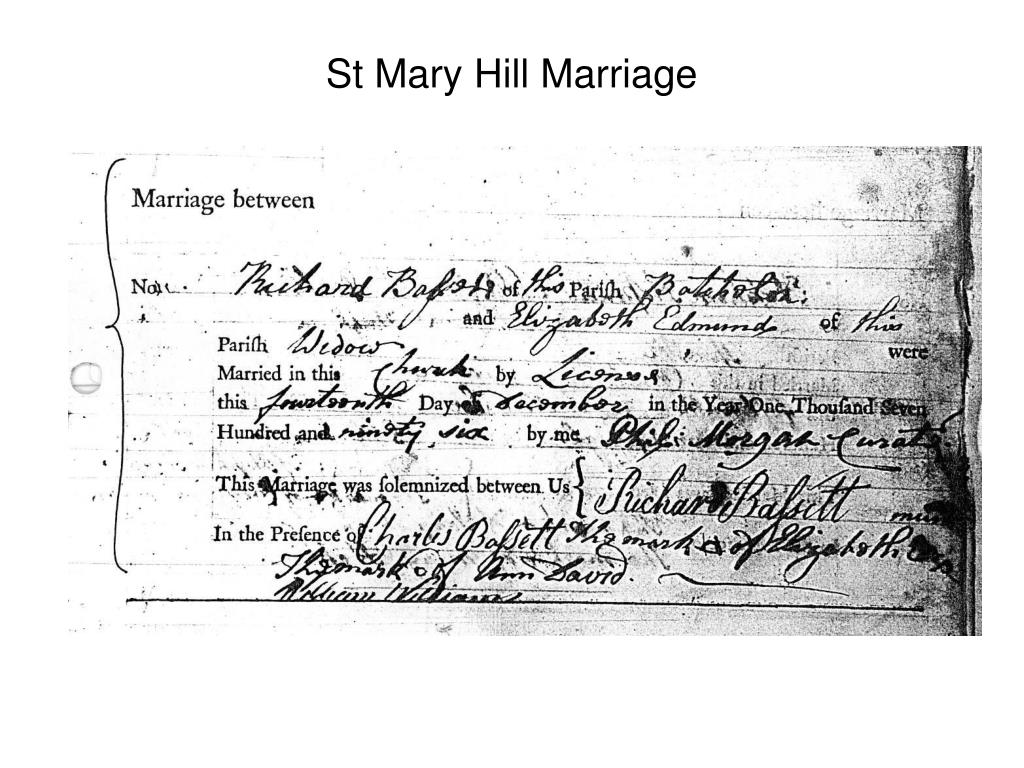 St Mary Hill Marriage
Marriage between
No Richard Bassett of this Pariſh Batchelor.
and Elizabeth Edmund of this
Pariſh Widow were
Married in this Church by License
this fourteenth Day of December in the Year One Thouſand Seven
Hundred and ninety six by me Phil: Morgan Curate
This Marriage was ſolemnized between Us Richard Baſsett
In the Preſence of Charles Baſsett The mark of Elizabeth
The mark of Ann David.
William Williams